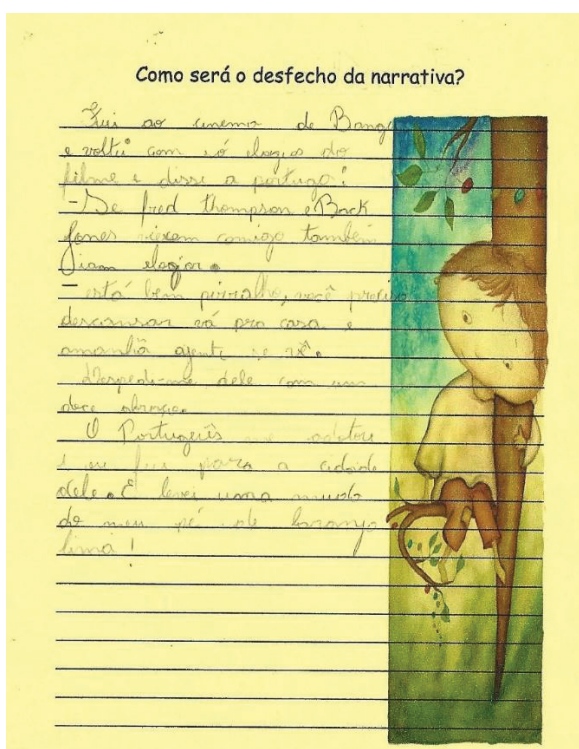 Como será o desfecho da narrativa?
Fui ao cinema de Bangu
e voltei com só elogios do
filme e disse a portuga:
-Se fred thompson e Back
Jones comigo também
iam elogiar.
- está bem pirralho, você precisa
descansar vá pra casa e
amanhã agente se vê.
Despedi-me dele com um
doce abraço.
O Português me adotou
e eu fui para a cidade
dele. E levei uma muda
do meu pé de laranja
lima!